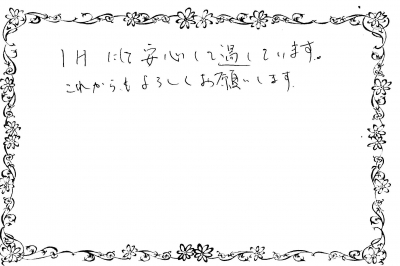 IHにて安心して過しています。
これからもよろしくお願いします